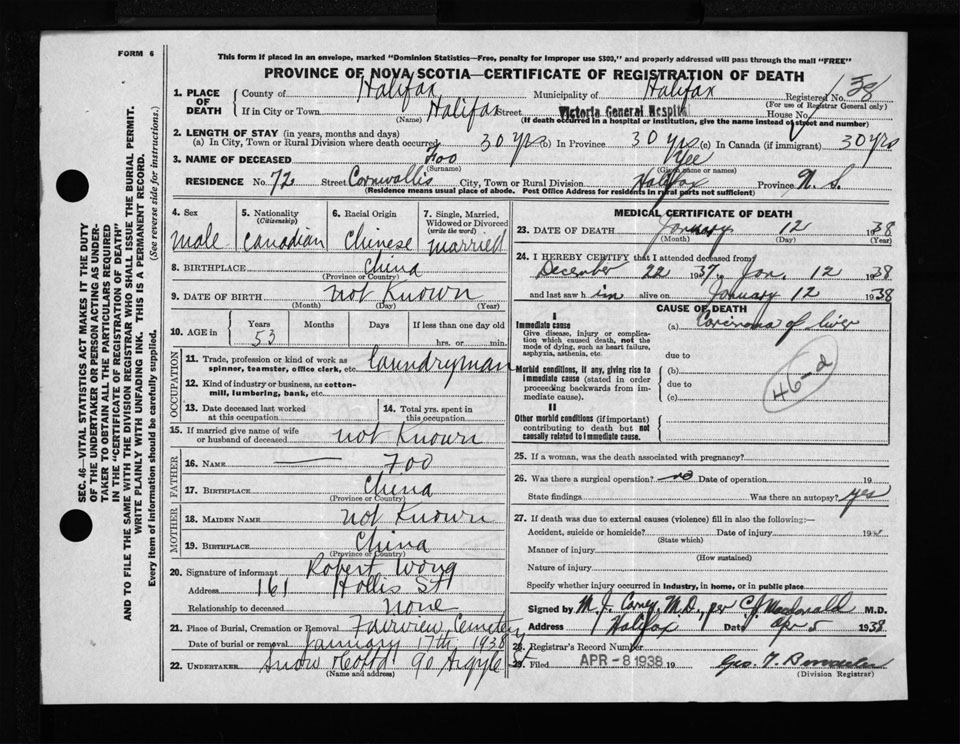 FORM 6
This form if placed in an envelope, marked "Dominion Statistics—Free, penalty for improper use $300," and properly addressed will pass through the mail "FREE"
PROVINCE OF NOVA SCOTIA—CERTIFICATE OF REGISTRATION OF DEATH
1. PLACE OF DEATH
County of Halifax Municipality of Halifax Registered No. 38
(For use of Registrar General only)
If in City or Town Halifax Street Victoria General Hospital House No.
(Name) (If death occurred in a hospital or institution, give the name instead of street and number)
2. LENGTH OF STAY (in years, months and days)
(a) In City, Town or Rural Division where death occurred 30 yrs (b) In Province 30 yrs (c) In Canada (if immigrant) 30 yrs
3. NAME OF DECEASED Foo Yee
(Surname) (Given name or names)
RESIDENCE No. 72 Street Cornwallis City, Town or Rural Division Halifax Province N. S.
(Residence means usual place of abode. Post Office Address for residents in rural parts not sufficient)
4. Sex
male
5. Nationality
(Citizenship)
Canadian
6. Racial Origin
Chinese
7. Single, Married, Widowed or Divorced
(write the word)
married
8. BIRTHPLACE China
(Province or Country)
9. DATE OF BIRTH not Known
(Month) (Day) (Year)
10. AGE in
Years Months Days If less than one day old
53 hrs. or min.
OCCUPATION
11. Trade, profession or kind of work as spinner, teamster, office clerk, etc. Laundryman
12. Kind of industry or business, as cotton-mill, lumbering, bank, etc.
13. Date deceased last worked at this occupation
14. Total yrs. spent in this occupation
15. If married give name of wife or husband of deceased not Known
FATHER
16. NAME — Foo
17. BIRTHPLACE China
(Province or Country)
MOTHER
18. MAIDEN NAME not Known
19. BIRTHPLACE China
(Province or Country)
20. Signature of informant Robert Wong
Address 161 Hollis St
Relationship to deceased none
21. Place of Burial, Cremation or Removal Fairview Cemetery
Date of burial or removal January 17th 1938
22. UNDERTAKER Snow 90 Argyle St
(Name and address)
MEDICAL CERTIFICATE OF DEATH
23. DATE OF DEATH January 12 1938
(Month) (Day) (Year)
24. I HEREBY CERTIFY that I attended deceased from
December 22 1937 Jan. 12 1938
and last saw h im alive on January 12 1938
CAUSE OF DEATH
I
Immediate cause
Give disease, injury or complication which caused death, not the mode of dying, such as heart failure, asphyxia, asthenia, etc.
(a) Carcinoma of liver
due to
Morbid conditions, if any, giving rise to immediate cause (stated in order proceeding backwards from immediate cause).
(b)
due to
(c)
46-d
II
Other morbid conditions (if important) contributing to death but not causally related to immediate cause.
25. If a woman, was the death associated with pregnancy?
26. Was there a surgical operation? no Date of operation 19
State findings Was there an autopsy? yes
27. If death was due to external causes (violence) fill in also the following:—
Accident, suicide or homicide? Date of injury 193
(State which)
Manner of injury
(How sustained)
Nature of injury
Specify whether injury occurred in industry, in home, or in public place
Signed by M. J. Carney M.D., per C J Macdonald M.D.
Address Halifax Date Apr 5 1938
28. Registrar's Record Number
29. Filed APR -8 1938 19
Geo. T.
(Division Registrar)
SEC. 46—VITAL STATISTICS ACT MAKES IT THE DUTY
OF THE UNDERTAKER OR PERSON ACTING AS UNDER-
TAKER TO OBTAIN ALL THE PARTICULARS REQUIRED
IN THE "CERTIFICATE OF REGISTRATION OF DEATH"
AND TO FILE THE SAME WITH THE DIVISION REGISTRAR WHO SHALL ISSUE THE BURIAL PERMIT.
WRITE PLAINLY WITH UNFADING INK. THIS IS A PERMANENT RECORD.
Every item of information should be carefully supplied. (See reverse side for instructions.)